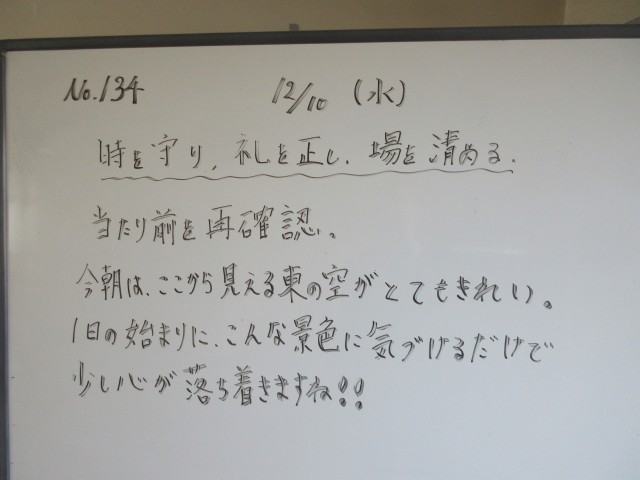 No.134 12/10 (水)
時を守り、礼を正し、場を清める。
当たり前を再確認。
今朝は、ここから見える東の空がとてもきれい。
1日の始まりに、こんな景色に気づけるだけで
少し心が落ち着きますね!!